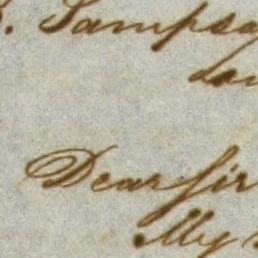 Sampso
Dear Sir
My